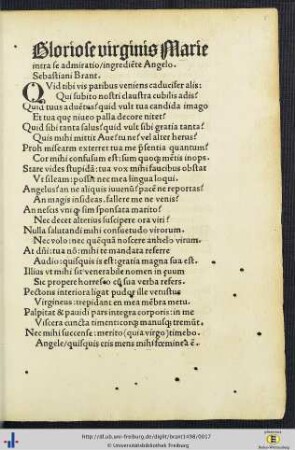 Gloriose virginis Marie
intra se admiratio/ingrediẽte Angelo.
Sebastiani Brant.
QVid tibi vis patribus veniens caducifer alis:
Qui subito nostri claustra cubilis adis?
Quid tuus aduẽtus? quid vult tua candida imago
Et tua que niueo palla decore nitet?
Quid sibi tanta salus? quid vult sibi gratia tanta?
Quis mihi mittit Aue? tu ne/ vel alter herus?
Proh miseram exterret tua me p̃sentia quantum?
Cor mihi confusum est: sum quoq; mẽtis inops.
Stare vides stupidã: tua vox mihi faucibus obstat
Vt sileam: possũ nec mea lingua loqui.
Angelus? an ne aliquis iuuenũ? pacẽ ne reportas?
An magis insideas. fallere me ne venis?
An nescis vnq; sim sponsata marito?
Nec decet alterius suscipere ora viri?
Nulla salutandi mihi consuetudo virorum.
Nec volo: nec quẽquã noscere anhelo virum.
At dñi: tua nõ: mihi te mandata referre
Audio: quisquis is est: gratia magna sua est.
Illius vt mihi sit venerabile nomen in ęuum
Sic propere horresco sua verba refers.
Pectoris interiora ligat pudor ille vetustus
Virgineus: trepidant en mea mẽbra metu.
Palpitat & pauidi pars integra corporis: in me
Viscera cuncta timent: corq; manusq; tremũt.
Nec mihi succense: merito (quia virgo) timebo.
Angele/ quisquis eris mens mihi fœminea ẽ.
http://dl.ub.uni-freiburg.de/diglit/brant1498/0017
© Universitätsbibliothek Freiburg